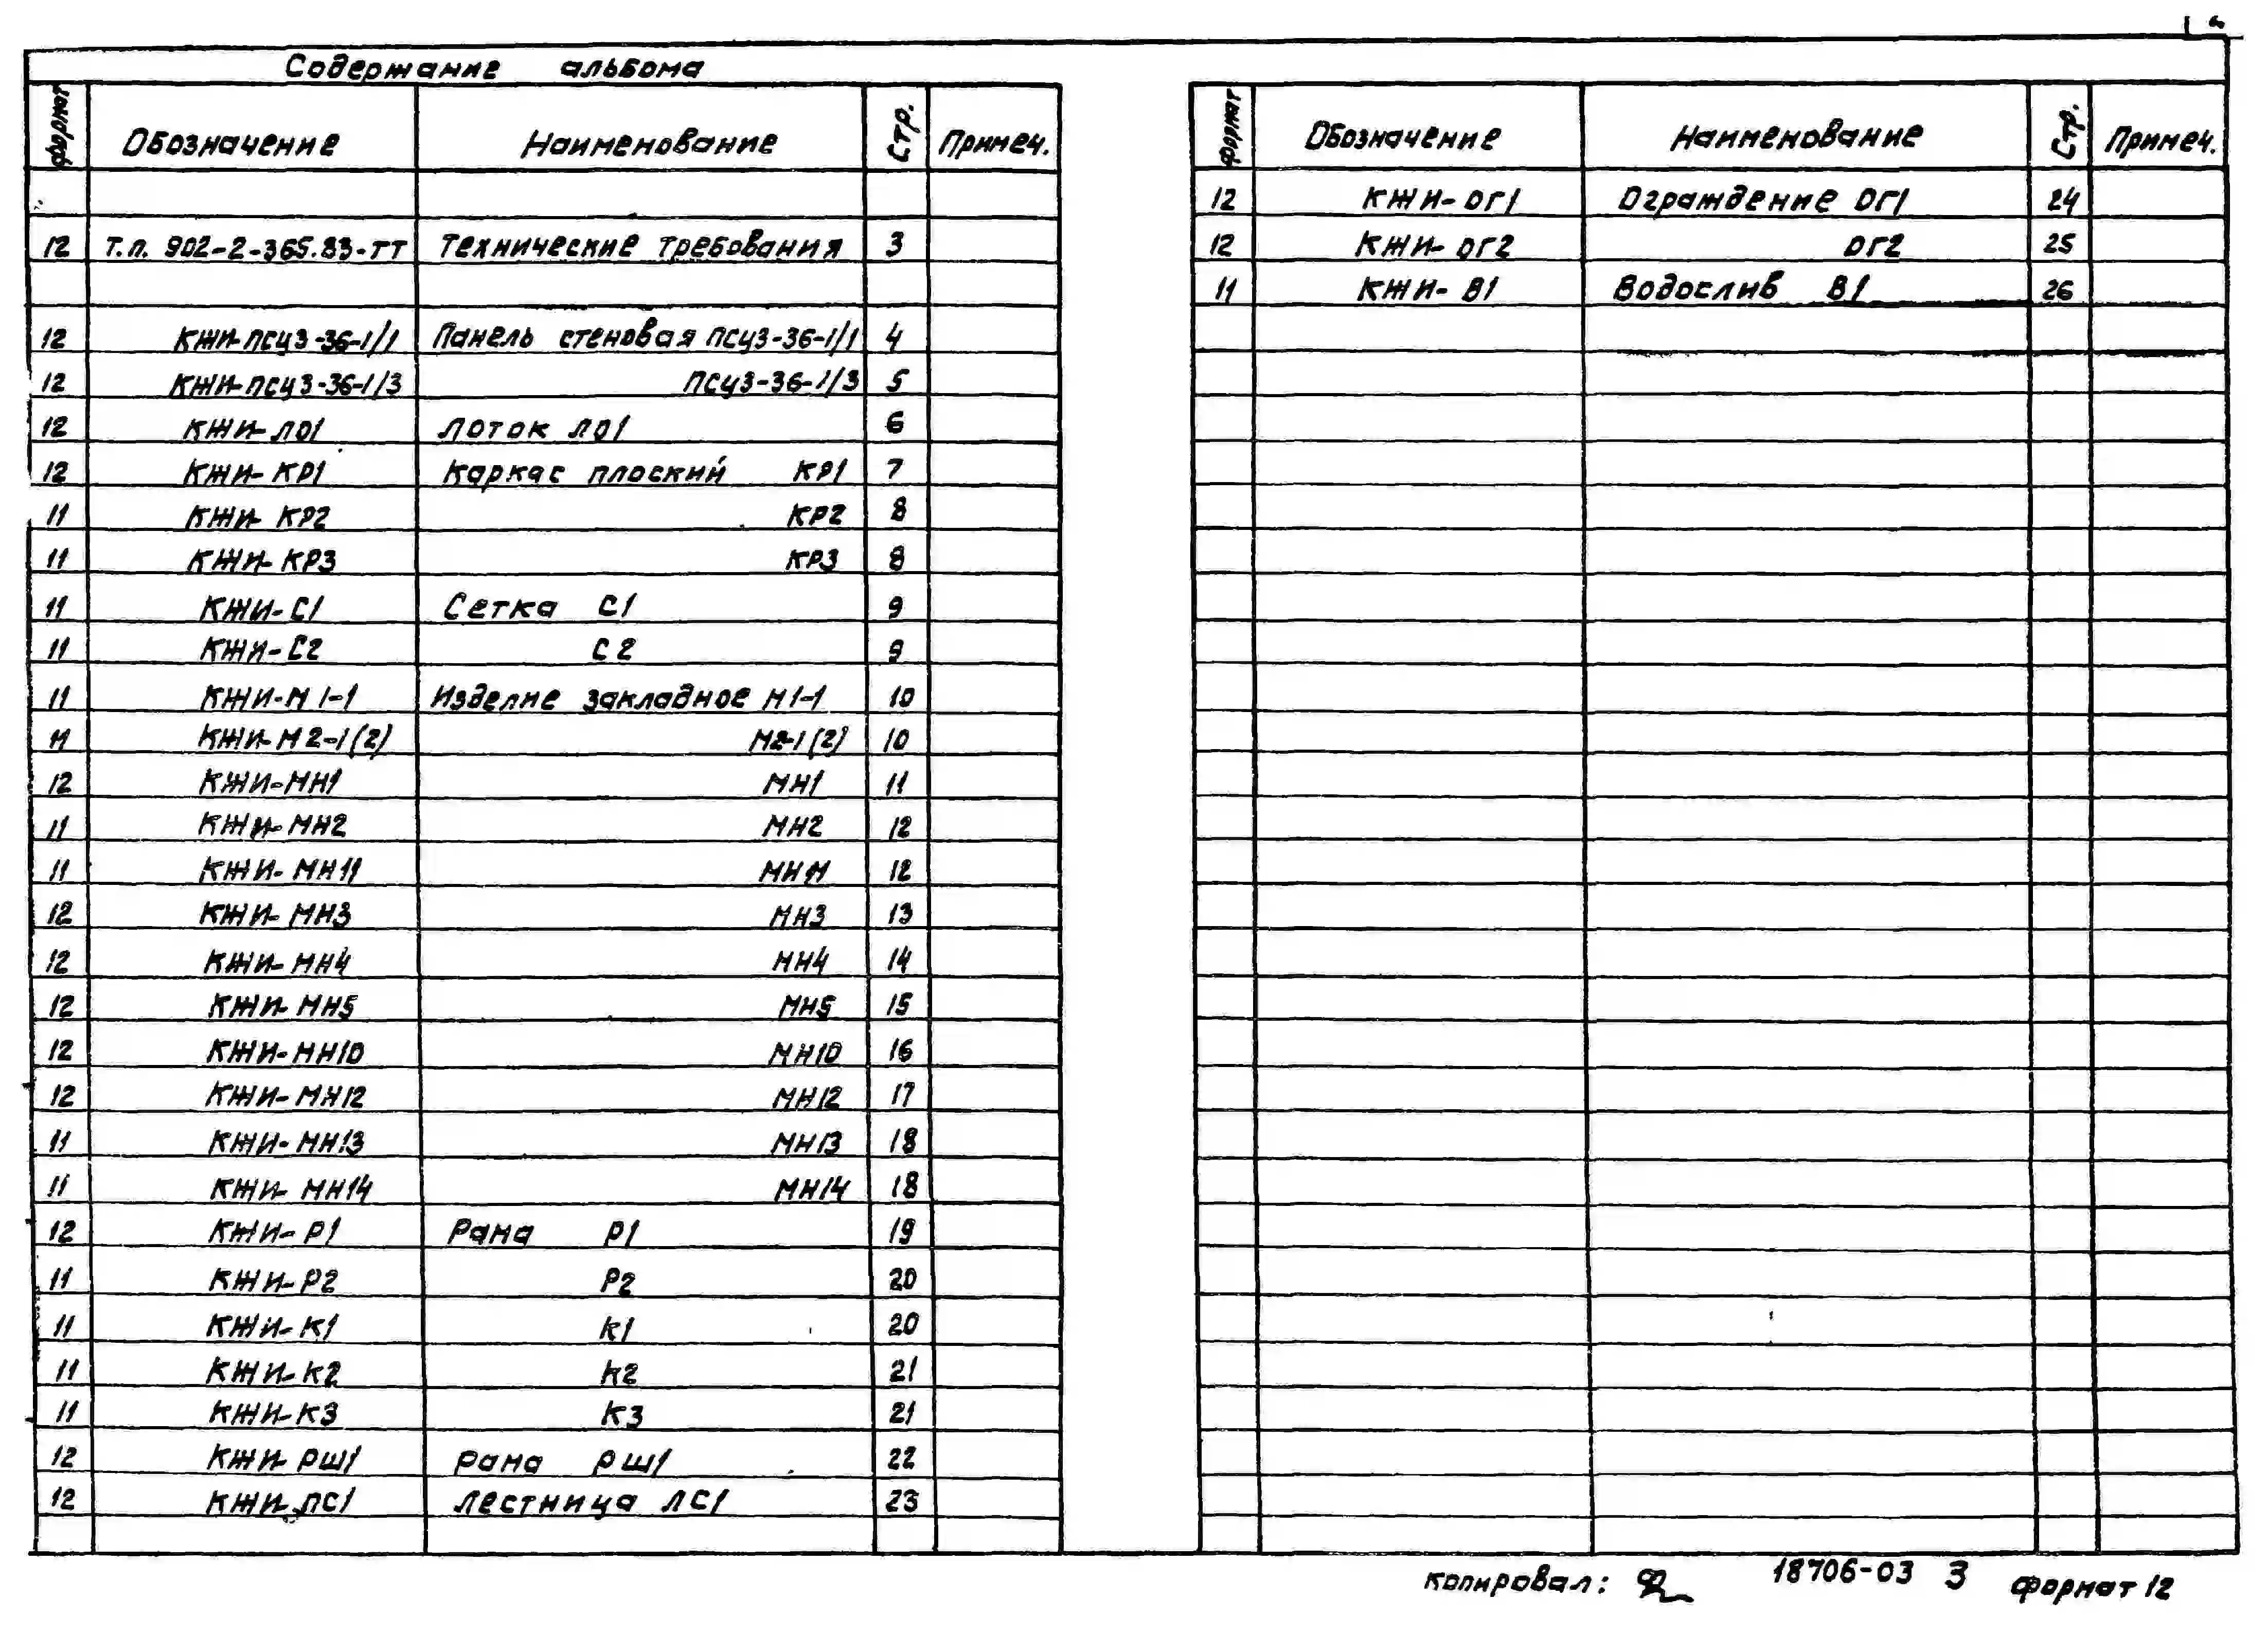 Содержание альбома
формат Обозначение Наименование Стр. Примеч.
12 т.п. 902-2-365.83-ТТ Технические требования 3
12 КЖИ-ПСЦ3-36-1/1 Панель стеновая ПСЦ3-36-1/1 4
12 КЖИ-ПСЦ3-36-1/3 ПСЦ3-36-1/3 5
12 КЖИ-ЛО1 Лоток ЛО1 6
12 КЖИ-КР1 Каркас плоский КР1 7
11 КЖИ-КР2 КР2 8
11 КЖИ-КР3 КР3 8
11 КЖИ-С1 Сетка С1 9
11 КЖИ-С2 С2 9
11 КЖИ-М1-1 Изделие закладное М1-1 10
11 КЖИ-М2-1(2) М2-1(2) 10
12 КЖИ-МН1 МН1 11
11 КЖИ-МН2 МН2 12
11 КЖИ-МН11 МН11 12
12 КЖИ-МН3 МН3 13
12 КЖИ-МН4 МН4 14
12 КЖИ-МН5 МН5 15
12 КЖИ-МН10 МН10 16
12 КЖИ-МН12 МН12 17
11 КЖИ-МН13 МН13 18
11 КЖИ-МН14 МН14 18
12 КЖИ-Р1 Рама Р1 19
11 КЖИ-Р2 Р2 20
11 КЖИ-К1 К1 20
11 КЖИ-К2 К2 21
11 КЖИ-К3 К3 21
12 КЖИ-РШ1 Рама РШ1 22
12 КЖИ-ЛС1 Лестница ЛС1 23
формат Обозначение Наименование Стр. Примеч.
12 КЖИ-ОГ1 Ограждение ОГ1 24
12 КЖИ-ОГ2 ОГ2 25
11 КЖИ-В1 Водослив В1 26
копировал: 18706-03 3 формат 12